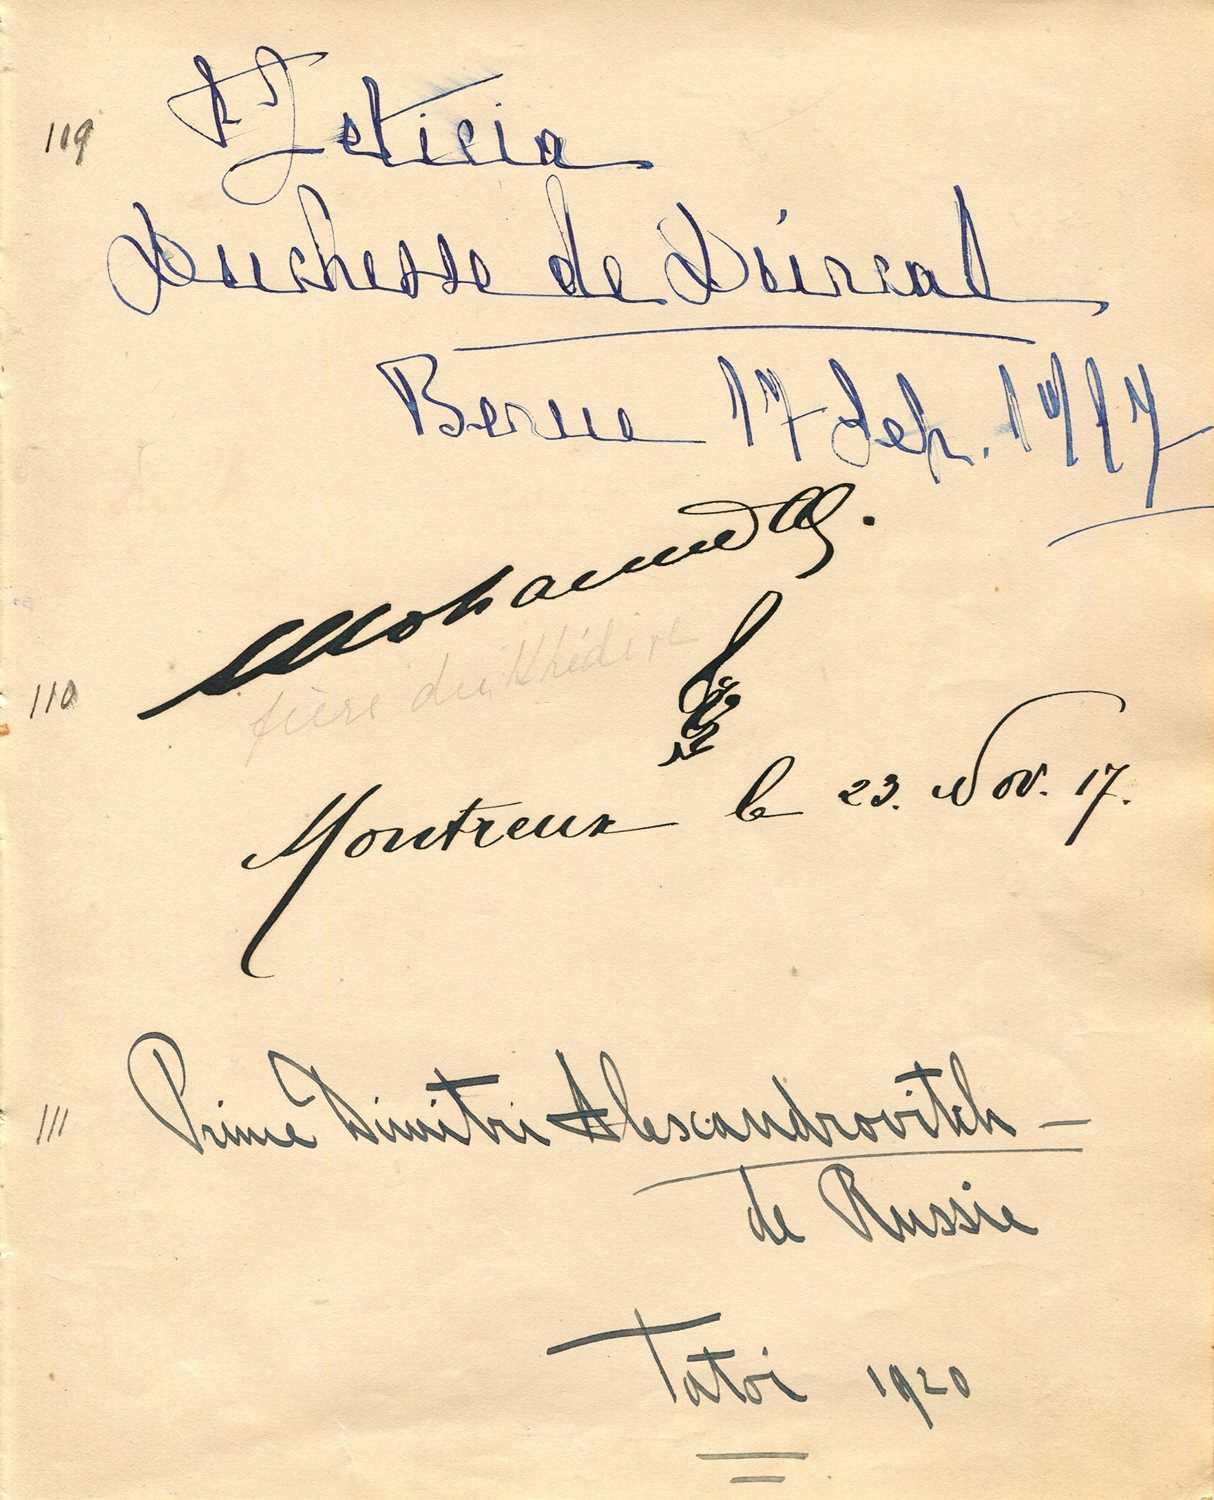 119
Leticia
Duchesse de Dúrcal
Berne 17 Sep. 1917
Mohamed Ali.
110
frère du Khédive
Montreux le 23. Nov. 17.
111
Prince Dimitri Alexandrovitch -
de Russie
Tatoi 1920